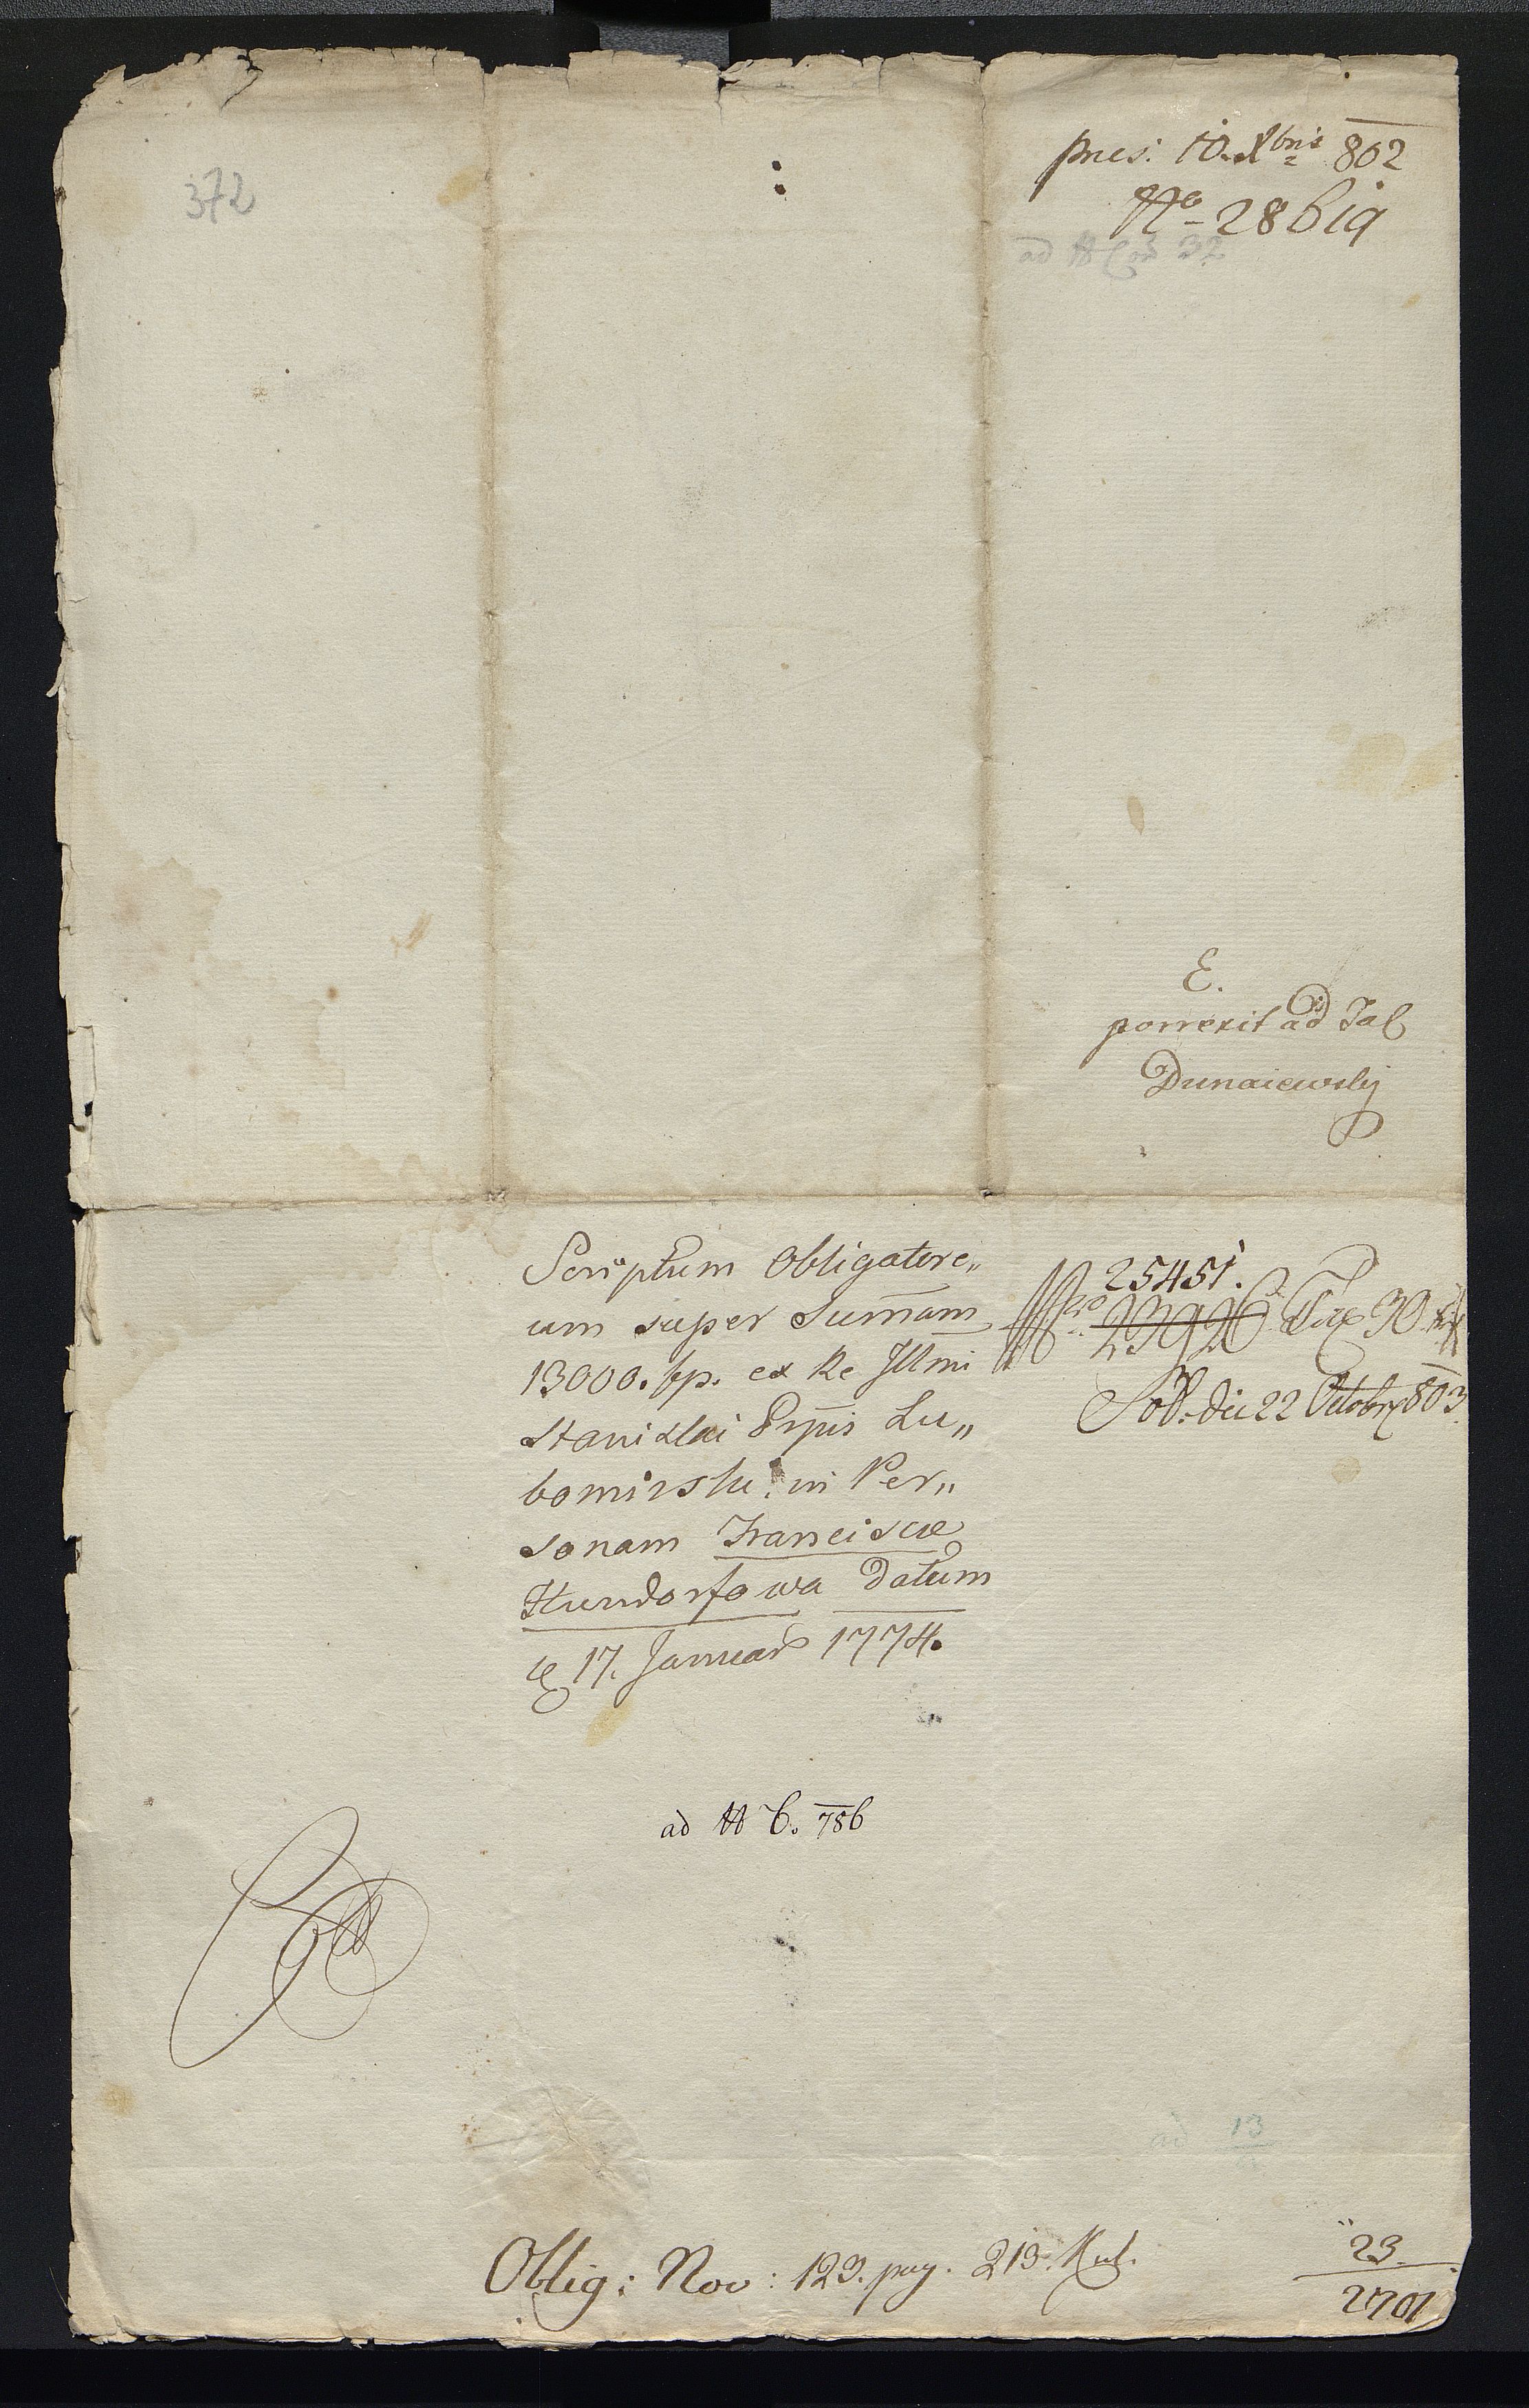 372
pres: 10. Xbris 802
No 28619
ad N 32
E.
porrexit ad Tab
Dunaiewsky
Scriptum Obligatori„
um super Sumam
13000. fp. ex Re Illmi
Stanislai Prpis Lu„
bomirski in Per„
sonam Franciscae
Hundorfowa Datum
17. Januar 1774.
25451.
Tax 30 xr
Sol. die 22 Octobr 803
ad N 6. 786
ad 13
Oblig: Nov: 123. pag. 213.
23
2701